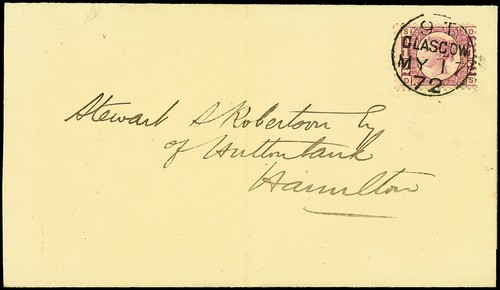 9 T
GLASGOW
MY 17
72
S D
D S
Stewart S Robertson Esq
of Huttonbank
Hamilton